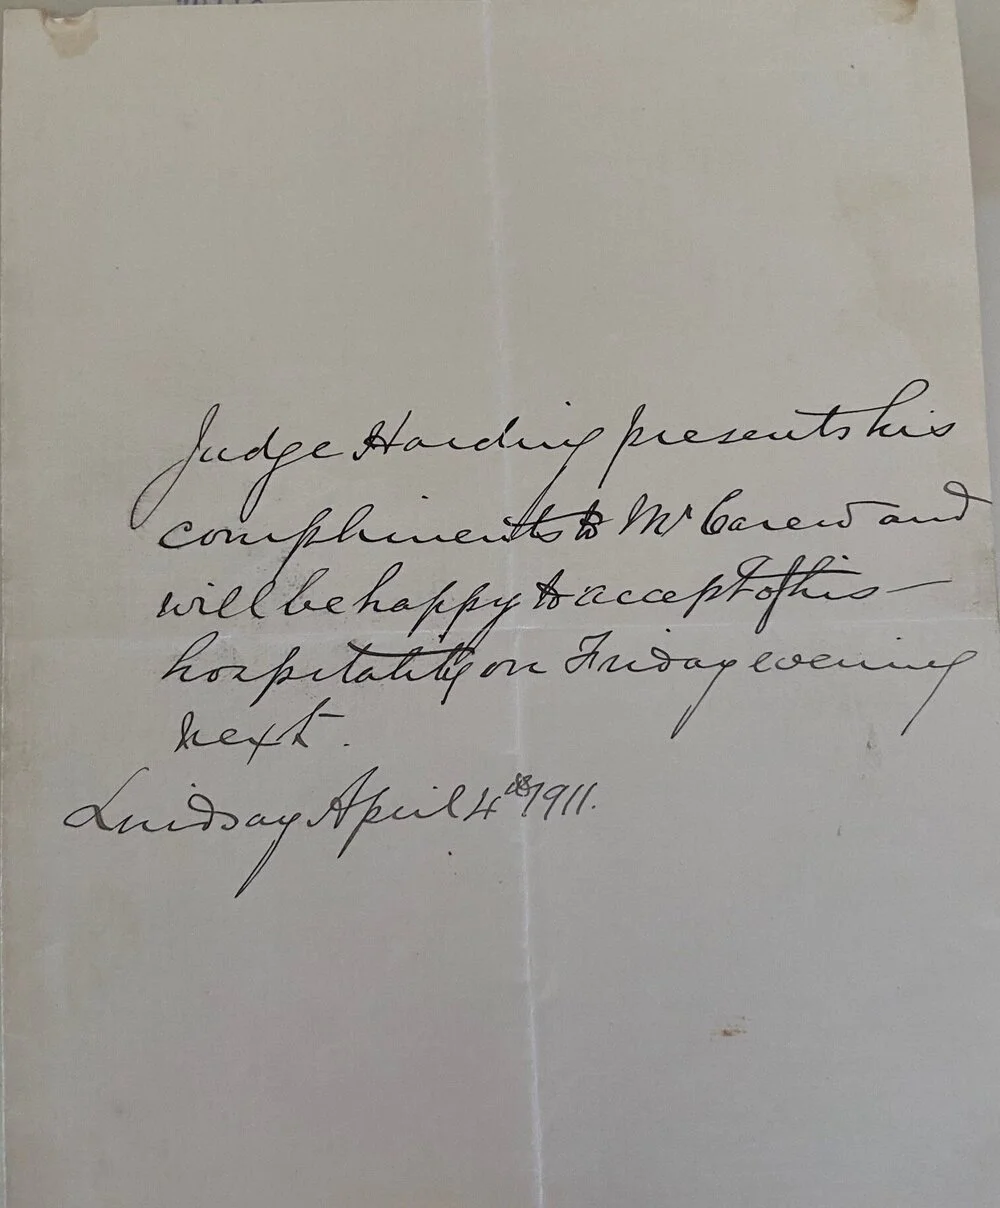 Judge Harding presents his
compliments to Mr Carew and
will be happy to accept of his
hospitality on Friday evening
next.
Lindsay April 4th 1911.